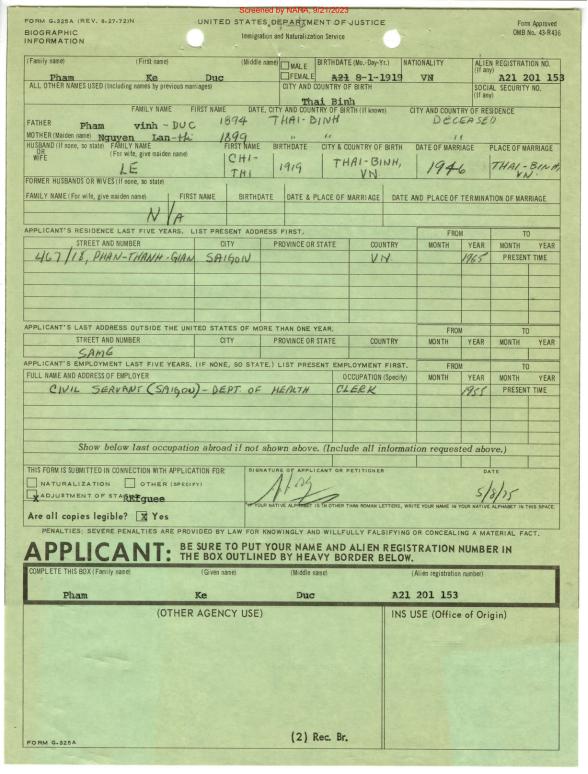 Screened by NARA, 9/27/2023
FORM G-325A (REV. 8-27-72)N
UNITED STATES DEPARTMENT OF JUSTICE
Form Approved
OMB No. 43-R436
BIOGRAPHIC
INFORMATION
Immigration and Naturalization Service
(Family name) (First name) (Middle name) MALE FEMALE BIRTHDATE (Mo.-Day-Yr.) NATIONALITY ALIEN REGISTRATION NO. (If any)
Pham Ke Duc A21 8-1-1919 VN A21 201 153
ALL OTHER NAMES USED (Including names by previous marriages) CITY AND COUNTRY OF BIRTH SOCIAL SECURITY NO. (If any)
Thai Binh
FAMILY NAME FIRST NAME DATE, CITY AND COUNTRY OF BIRTH (If known) CITY AND COUNTRY OF RESIDENCE
FATHER Pham vinh-DUC 1894 THAI-BINH DECEASED
MOTHER (Maiden name) Nguyen Lan-thi 1899 " " "
HUSBAND (If none, so state) OR WIFE FAMILY NAME (For wife, give maiden name) FIRST NAME BIRTHDATE CITY & COUNTRY OF BIRTH DATE OF MARRIAGE PLACE OF MARRIAGE
LE CHI-THI 1919 THAI-BINH, VN 1946 THAI-BINH, VN.
FORMER HUSBANDS OR WIVES (If none, so state)
FAMILY NAME (For wife, give maiden name) FIRST NAME BIRTHDATE DATE & PLACE OF MARRIAGE DATE AND PLACE OF TERMINATION OF MARRIAGE
N/A
APPLICANT'S RESIDENCE LAST FIVE YEARS. LIST PRESENT ADDRESS FIRST. FROM TO
STREET AND NUMBER CITY PROVINCE OR STATE COUNTRY MONTH YEAR MONTH YEAR
467/18, PHAN-THANH-GIAN SAIGON VN 1965 PRESENT TIME
APPLICANT'S LAST ADDRESS OUTSIDE THE UNITED STATES OF MORE THAN ONE YEAR. FROM TO
STREET AND NUMBER CITY PROVINCE OR STATE COUNTRY MONTH YEAR MONTH YEAR
SAME
APPLICANT'S EMPLOYMENT LAST FIVE YEARS. (IF NONE, SO STATE.) LIST PRESENT EMPLOYMENT FIRST. FROM TO
FULL NAME AND ADDRESS OF EMPLOYER OCCUPATION (Specify) MONTH YEAR MONTH YEAR
CIVIL SERVANT (SAIGON) - DEPT. OF HEALTH CLERK 1955 PRESENT TIME
Show below last occupation abroad if not shown above. (Include all information requested above.)
THIS FORM IS SUBMITTED IN CONNECTION WITH APPLICATION FOR: SIGNATURE OF APPLICANT OR PETITIONER DATE
NATURALIZATION OTHER (SPECIFY)
x ADJUSTMENT OF STATUS 5/8/75
IF YOUR NATIVE ALPHABET IS IN OTHER THAN ROMAN LETTERS, WRITE YOUR NAME IN YOUR NATIVE ALPHABET IN THIS SPACE.
Are all copies legible? x Yes
PENALTIES: SEVERE PENALTIES ARE PROVIDED BY LAW FOR KNOWINGLY AND WILLFULLY FALSIFYING OR CONCEALING A MATERIAL FACT.
APPLICANT: BE SURE TO PUT YOUR NAME AND ALIEN REGISTRATION NUMBER IN
THE BOX OUTLINED BY HEAVY BORDER BELOW.
COMPLETE THIS BOX (Family name) (Given name) (Middle name) (Alien registration number)
Pham Ke Duc A21 201 153
(OTHER AGENCY USE) INS USE (Office of Origin)
(2) Rec. Br.
FORM G-325A